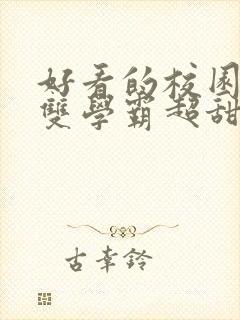 好看的校园
雙學霸超甜
古幸鈴